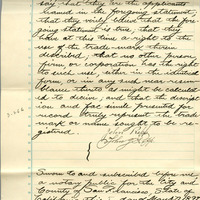 say that they are the applicants
named in the foregoing statement,
that they verily believe that the fore-
going statement is true, that they
have at this time a right to the
use of the trade mark therein
described, that no other person
firm or corporation has the right
to such use, either in the identical
form or in any such near resem-
blance thereto as might be calcula-
ted to deceive, and that the descrip-
tion and fac simile presented for
record truly represent the trade
mark or name sought to be re-
gistered.
John
Sworn to and subscribed before me
a notary Public for the City and
County of San Francisco State of
California this day of March 1877